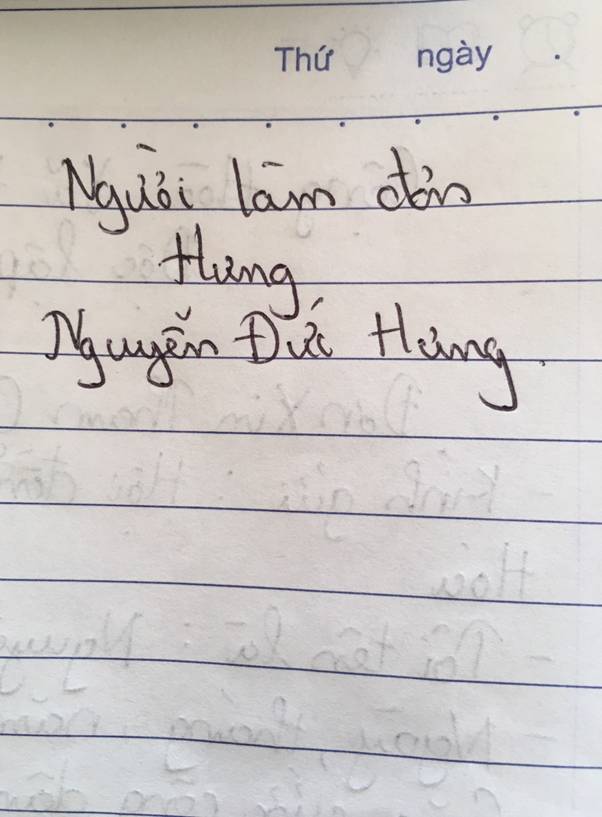 Thứ ngày .
Người làm đơn
Hưng
Nguyễn Đức Hưng.